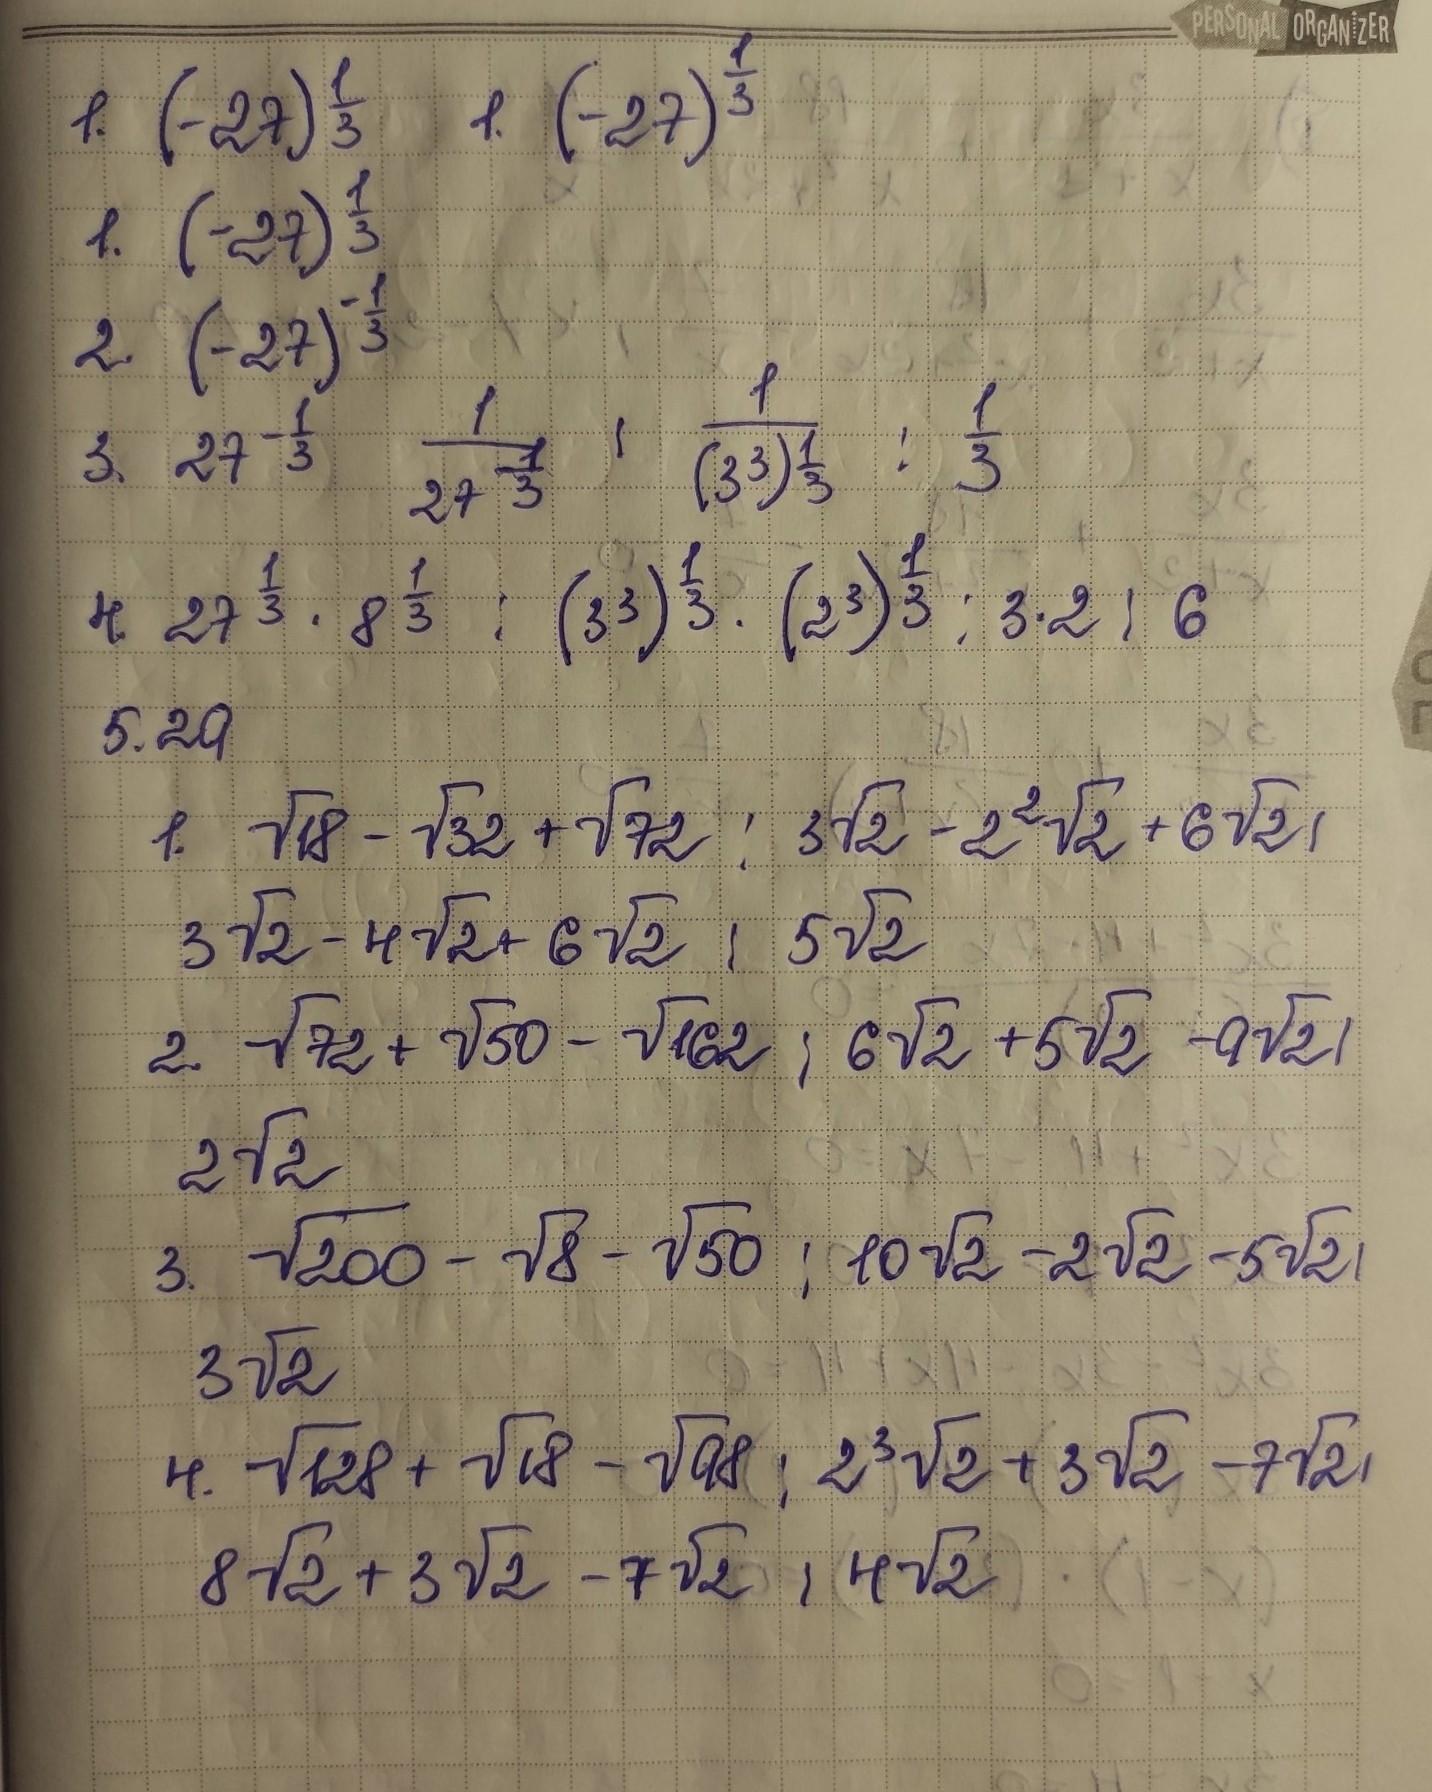 PERSONAL ORGANIZER
1. (-27)^{1/3} 1. (-27)^{1/3}
1. (-27)^{1/3}
2. (-27)^{-1/3}
3. 27^{-1/3} 1/27^{-1/3} ; 1/(3^3)^{1/3} ; 1/3
4. 27^{1/3} · 8^{1/3} ; (3^3)^{1/3} · (2^3)^{1/3} ; 3·2 ; 6
5.29
1. √18 - √32 + √72 ; 3√2 - 2^2√2 + 6√2 ;
3√2 - 4√2 + 6√2 ; 5√2
2. √72 + √50 - √162 ; 6√2 + 5√2 - 9√2 ;
2√2
3. √200 - √8 - √50 ; 10√2 - 2√2 - 5√2 ;
3√2
4. √128 + √18 - √98 ; 2^3√2 + 3√2 - 7√2 ;
8√2 + 3√2 - 7√2 ; 4√2